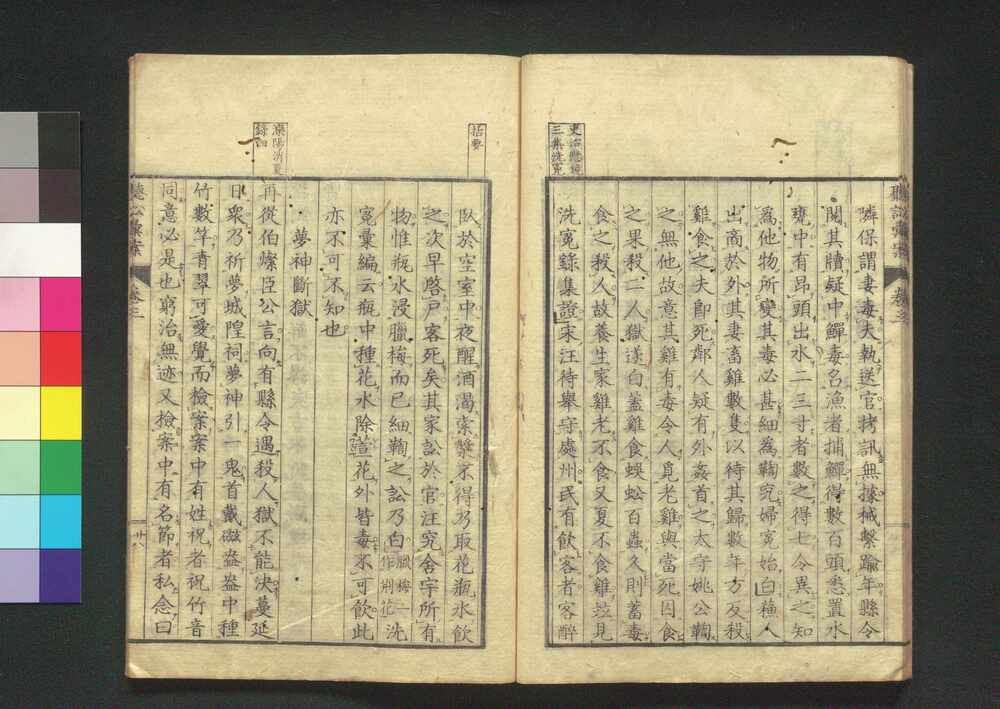 隣保謂妻毒夫執送官拷訊無據械繫踰年縣令
閱其牘疑中鱓毒名漁者捕鱓得數百頭悉置水
甕中有昂頭出水二三寸者數之得七令異之知
爲他物所變其毒必甚細爲鞫究婦冤始白
漁人
出商於外其妻畜雞數隻以待其歸數年方反殺
雞食之夫卽死鄰人疑有外姦首之太守姚公鞫
之無他故意其雞有毒令人覓老雞與當死囚食
之果殺二人獄遂白蓋雞食蜈蚣百蟲久則蓄毒
食之殺人故養生家雞老不食又夏不食雞竝見
洗冤錄集證
宋汪待舉守處州民有飮客者客醉
三集洗冤
臥於空室中夜醒酒渴索漿不得乃取花瓶水飮
之次早啓戶客死矣其家訟於官汪究舍宇所有
物惟瓶水浸臘梅而已細鞫之訟乃白
臘梅一
作荊花
洗
冤彙編云瓶中種花水除萱花外皆毒不可飮此
亦不可不知也
括要
夢神斷獄
再從伯燦臣公言向有縣令遇殺人獄不能決蔓延
日衆乃祈夢城隍祠夢神引一鬼首戴磁盎盎中種
竹數竿靑翠可愛覺而檢案案中有姓祝者祝竹音
同意必是也窮治無迹又檢案中有名節者私念曰
灤陽消夏
錄四
卷之三
卅八